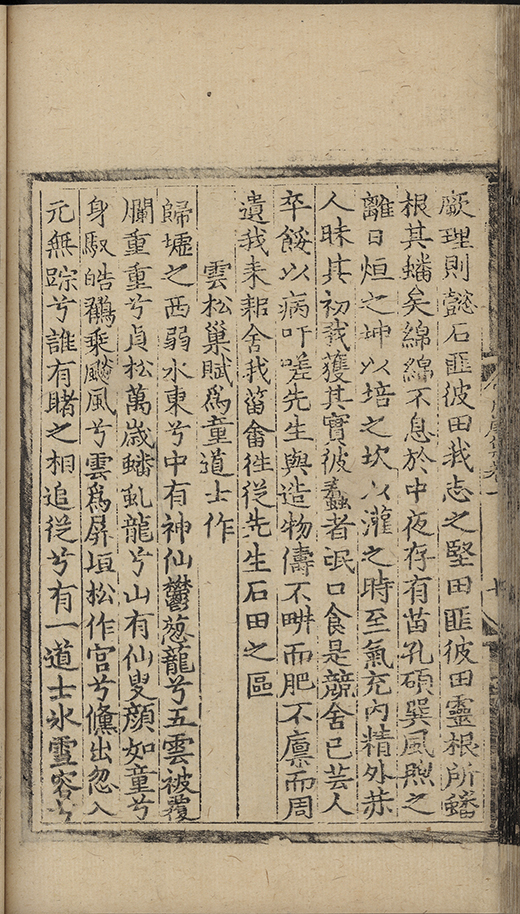 厥理則懿石匪彼田我志之堅田匪彼田靈根所蟠
根其蟠矣綿綿不息於中夜存有苗孔碩巽風煦之
離日烜之坤以培之坎以灌之時至氣充內精外恭
人昧其初我獲其實彼蠢者氓口食是競舍已芸人
卒餒以病吁嗟先生與造物儔不畊而肥不廪而周
遺我耒耜舍我菑畬徃從先生石田之區
雲松巢賦爲童道士作
歸墟之西弱水東兮中有神仙鬱葱蘢兮五雲被覆
爛重重兮貞松萬歲蟠虬龍兮山有仙叟顔如童兮
身馭皓鶴乘飈風兮雲爲屏垣松作宮兮儵出忽入
元無踪兮誰有睹之相追從兮有一道士氷雪容兮